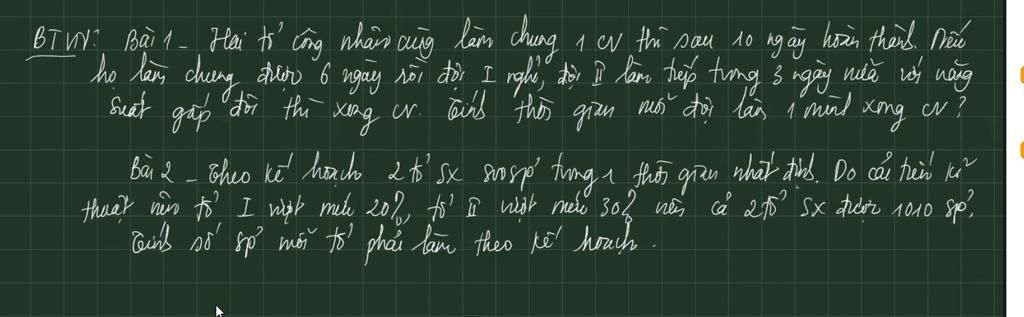 BTVN: Bài 1 - Hai tổ công nhân cùng làm chung 1 CV thì sau 10 ngày hoàn thành. Nếu
họ làm chung được 6 ngày rồi đội I nghỉ, đội II làm tiếp trong 3 ngày nữa với năng
suất gấp đôi thì xong CV. Tính thời gian mỗi đội làm 1 mình xong CV?
Bài 2 - Theo kế hoạch 2 tổ SX 800 sp trong 1 thời gian nhất định. Do cải tiến kĩ
thuật nên tổ I vượt mức 20%, tổ II vượt mức 30% nên cả 2 tổ SX được 1010 sp.
Tính số sp mỗi tổ phải làm theo kế hoạch.